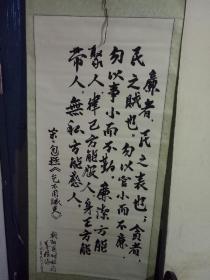 廉者，民之表也；贪者，
民之贼也。勿以官小而不廉，
勿以事小而不勤。廉洁方能
聚人，律己方能服人，身正方能
带人，無私方能感人。
宋·包拯《乞不用贓吏》